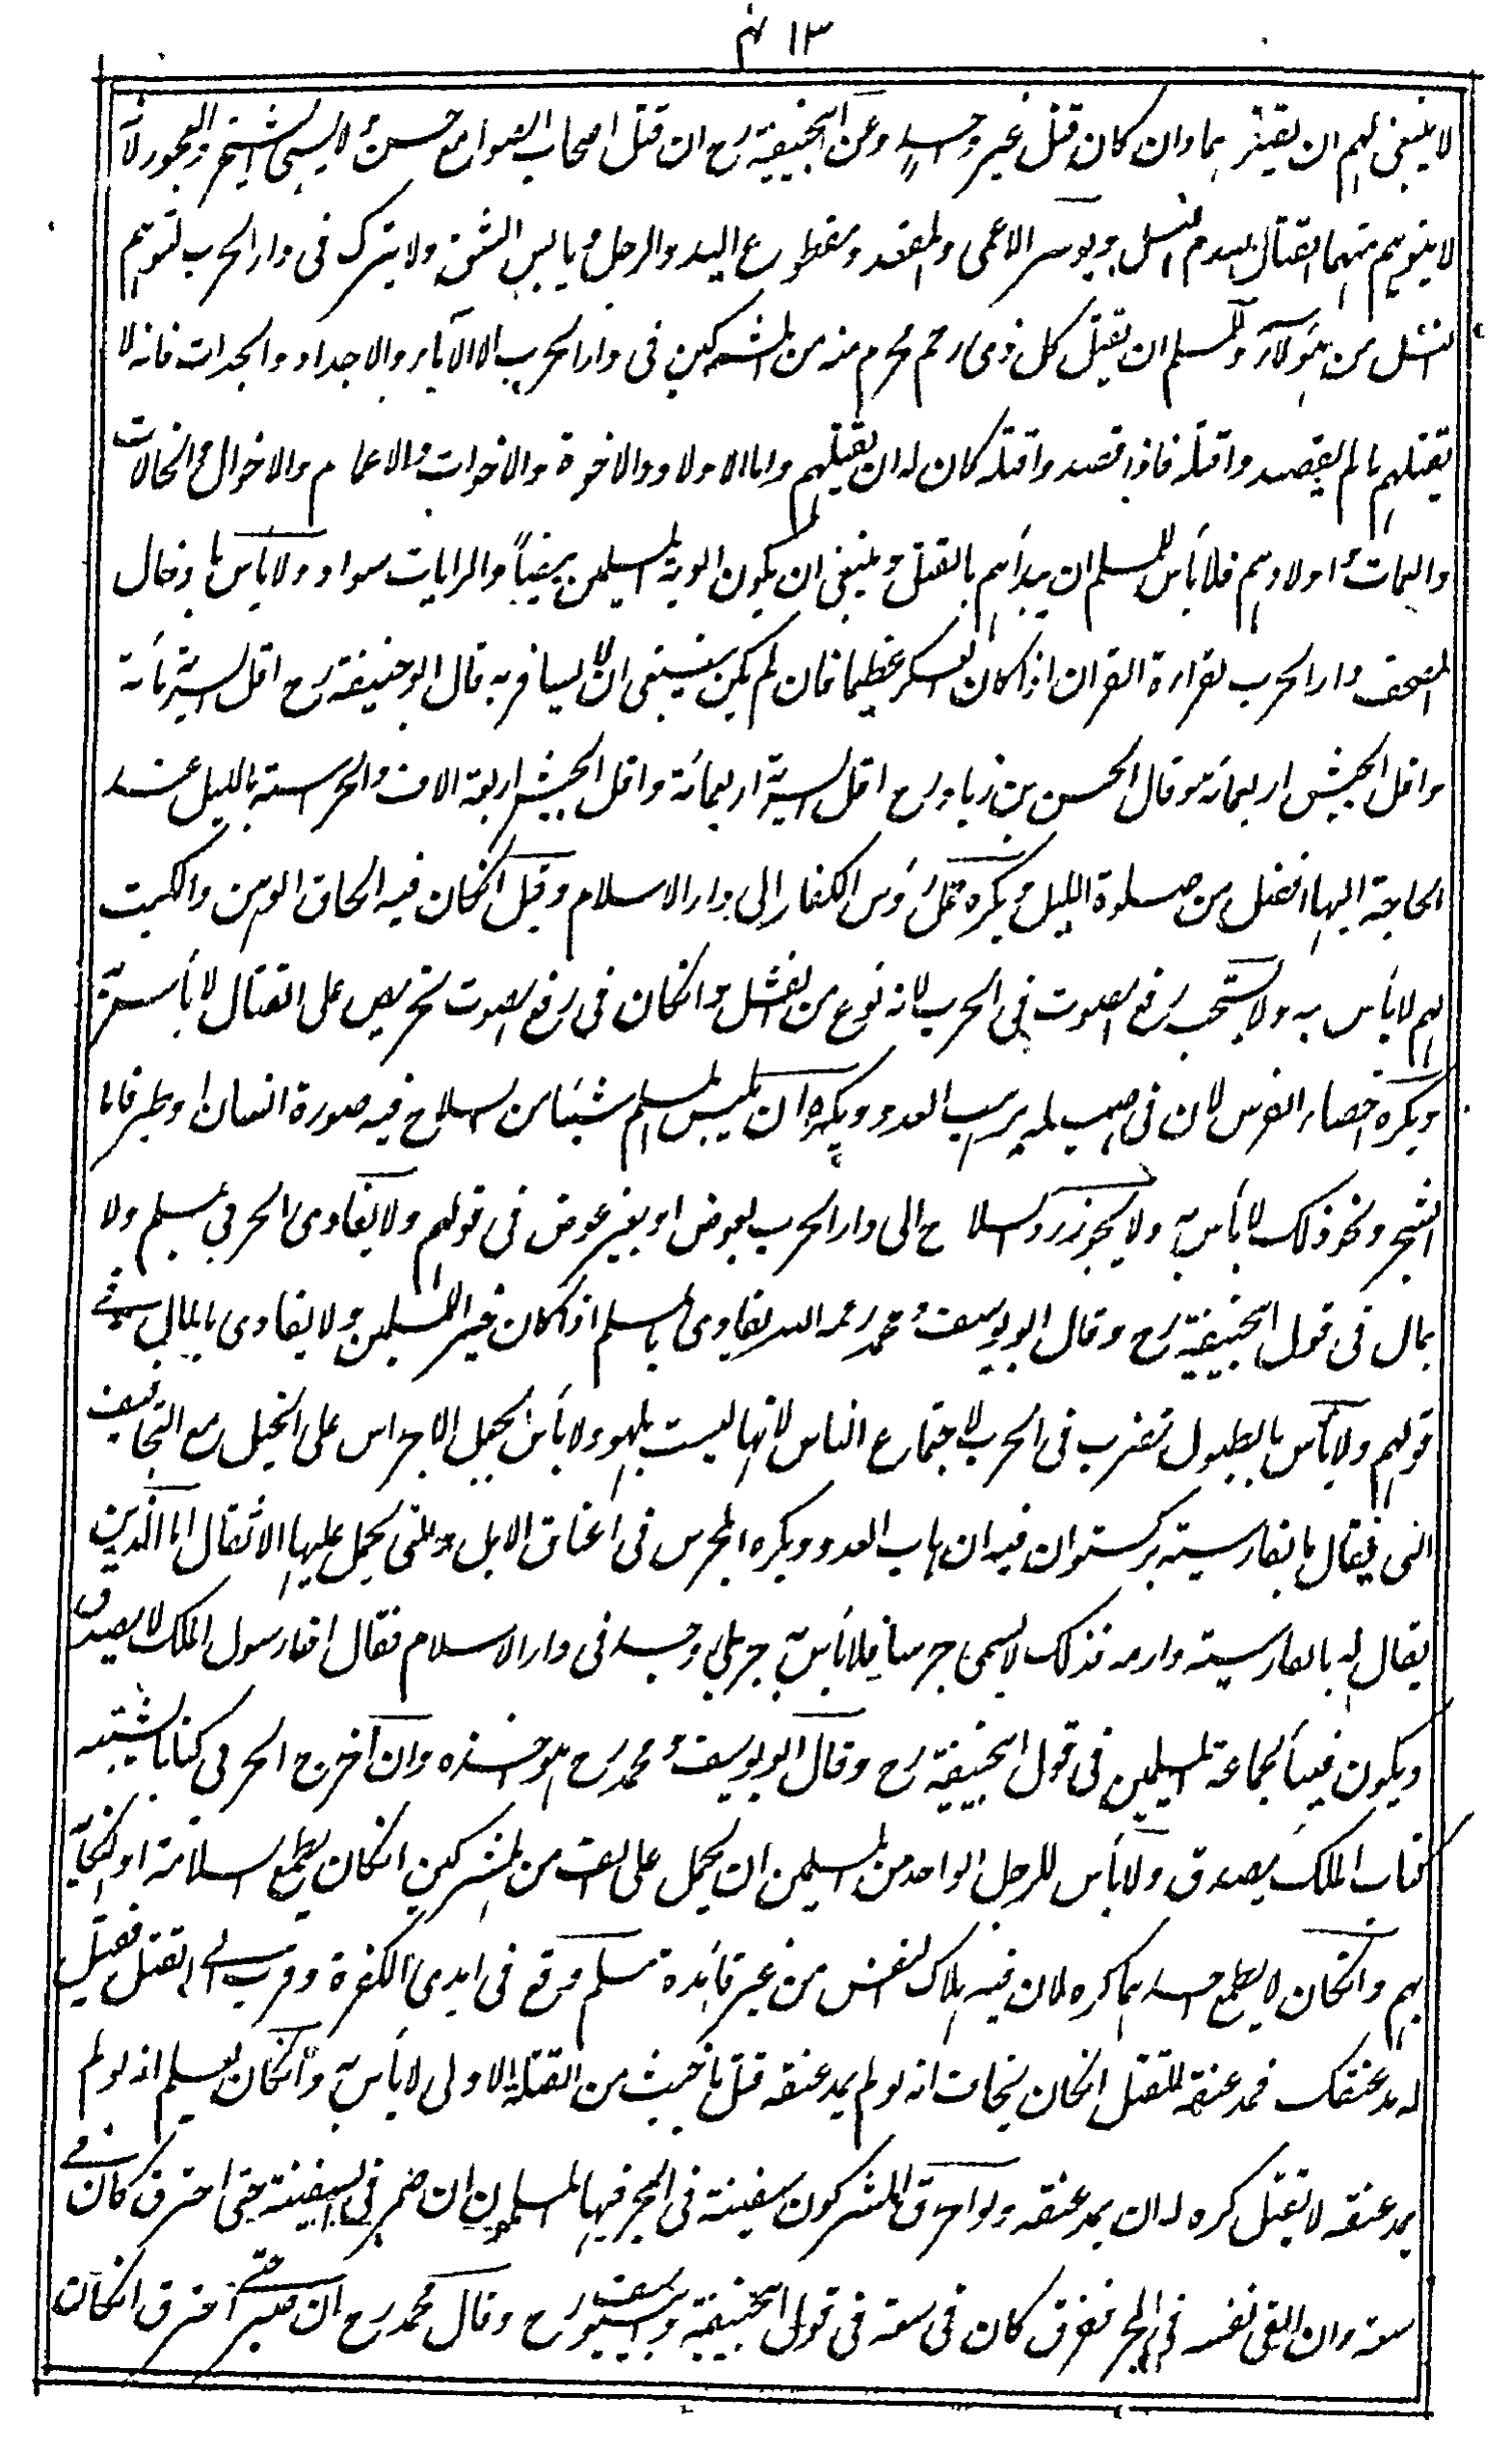 ١٣ ٤م
لا ينبغى لهم ان يقيم بها وان كان قتل غير واحد وعن ابيحنيفة رح ان قتل اصحاب الصوامع حسن ولا يسبى الشيخ والعجوز لانه
لا يتوهم منهما القتال بعدم النسل ويوسر الاعمى والمقعد ومقطوع اليد والرجل ويابس الشق ولا يترك فى دار الحرب لتوهم
النسل من هؤلاء وللمسلم ان يقتل كل ذى رحم محرم منه من المشركين فى دار الحرب الا الآباء والاجداد والجدات فانه لا
يقتلهم ما لم يقصد واقتله فاذا قصد واقتله كان له ان يقتلهم واما الاولاد والاخوة والاخوات والاعمام والاخوال والخالات
والعمات واولادهم فلا بأس للمسلم ان يبدأهم بالقتل وينبغى ان يكون الوية المسلمين بيضاً والرايات سواد ولا بأس بادخال
المصحف دار الحرب لقراءة القران اذا كان العسكر عظيما فان لم يكن ينبغى ان لا يسافر به قال ابو حنيفة رح اقل السرية مائة
واقل الجيش اربعمائة وقال الحسن بن زياد رح اقل السرية اربعمائة واقل الجيش اربعة الاف والحرسة بالليل عند
الحاجة اليها افضل من صلوة الليل ويكره حمل رؤس الكفار الى دار الاسلام وقيل انكان فيه الحاق الوهن والكبت
لهم لا بأس به ولا يستحب رفع الصوت فى الحرب لانه نوع من الفشل وانكان فى رفع الصوت تحريص على القتال لا بأس به
ويكره خصاء الفرس لان فى صهيله يرهب العدو ويكره ان يلبس المسلم شيئا من السلاح فيه صورة انسان او طير فاما
الشجر ونحو ذلك لا بأس به ولا يجوز رد السلاح الى دار الحرب بعوض او بغير عوض فى قولهم ولا يفادى الحربى بمسلم ولا
بمال فى قول ابيحنيفة رح وقال ابو يوسف ومحمد رحمه الله يفادى بالمسلم اذا كان خير للمسلمين ولا يفادى بالمال فى
قولهم ولا بأس بالطبول تضرب فى الحرب لاجتماع الناس لانها ليست بلهو ولا بأس بجعل الاجراس على الخيل مع التجافيف
التى فيقال بالفارسية بركستوان فيه ارهاب العدو ويكره الجرس فى اعناق الابل والتى يحمل عليها الاثقال اما الذين
يقال له بالفارسية دارمه فذلك لا يسمى جرسا فلا بأس به حربى وجد فى دار الاسلام فقال انا رسول الملك لا يصدق
ويكون فيئاً لجماعة المسلمين فى قول ابيحنيفة رح وقال ابو يوسف ومحمد رح هو لمن اخذه وان اخرج الحربى كتابا يشبه
كتاب الملك يصدق ولا بأس للرجل الواحد من المسلمين ان يحمل على الف من المشركين انكان يطمع السلامة او النكاية
بهم وانكان لا يطمع احدهما كره لان فيه هلاك النفس من غير فائدة مسلم وقع فى ايدى الكفرة وقرب الى القتل فقيل
له مد عنقك فمد عنقه للقتل انكان يخاف انه لو لم يمد عنقه قتل باخبث من القتلة الاولى لا بأس به وانكان يعلم انه لو لم
يمد عنقه لا يقتل كره له ان يمد عنقه ولو احرق المشركون سفينة فى البحر فيها المسلمون ان صبر فى السفينة حتى احترق كان فى
سعة وان القى نفسه فى البحر فغرق كان فى سعة فى قول ابيحنيفة وابى يوسف رح وقال محمد رح ان صبر حتى احترق انكان